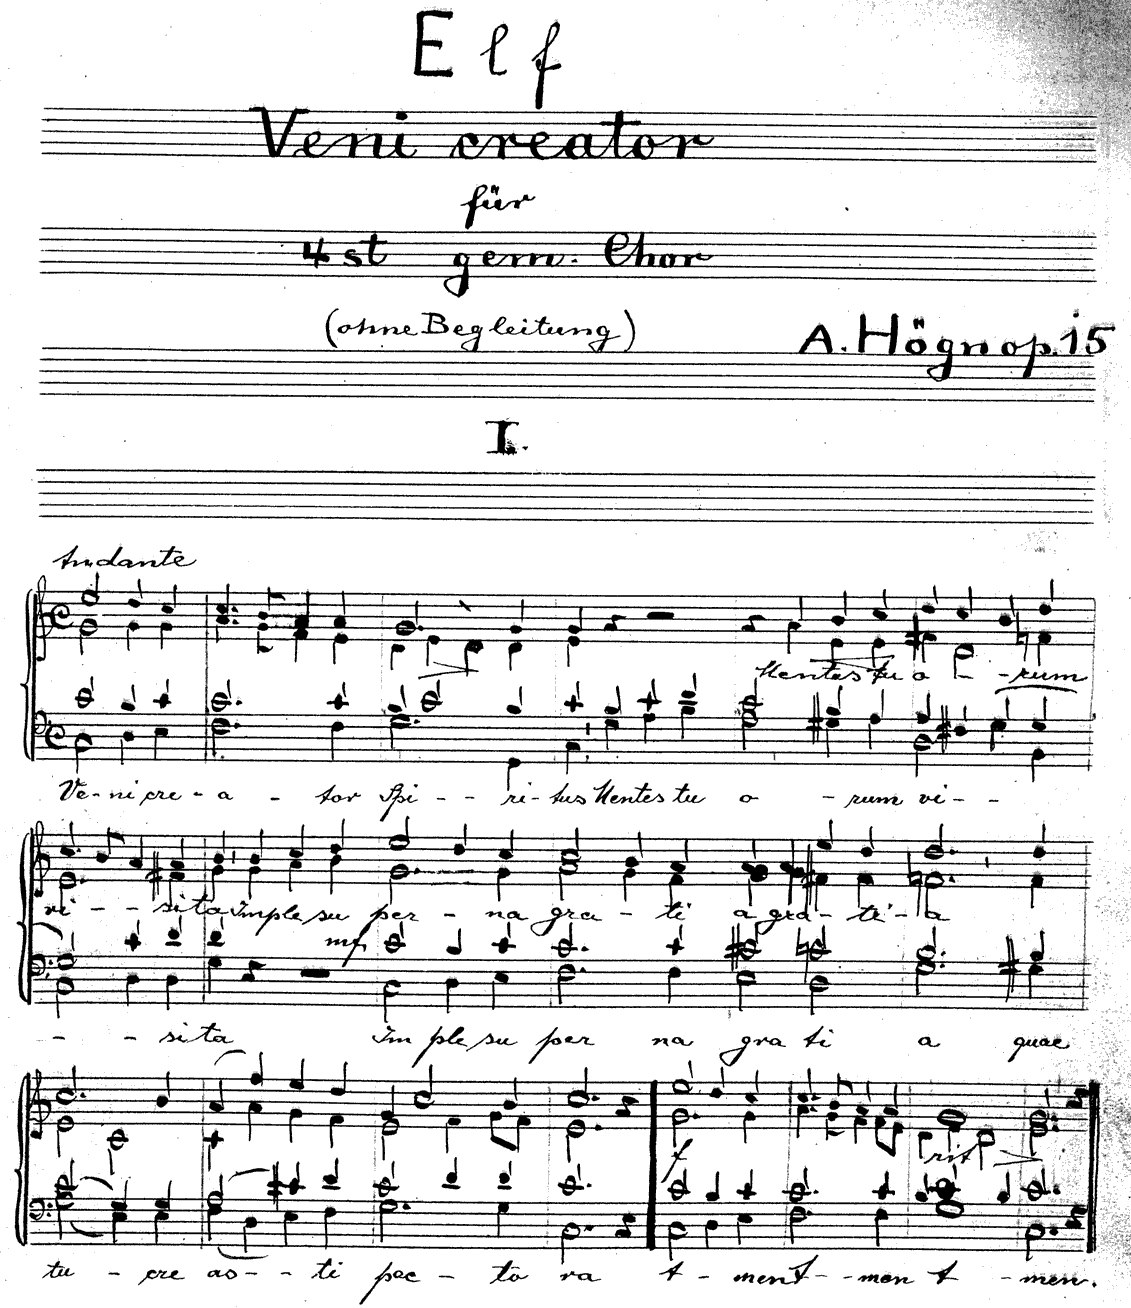 Elf
Veni creator
für
4 st gem. Chor
(ohne Begleitung)
A. Högn op. 15
I.
Andante
Mentes tu o - - rum
Ve - ni cre - a - tor Spi - - ri - tus Mentes tu o - rum vi - -
vi - - sita Imple su per - na gra - ti a gra - ti - a
mf
- - sita Im ple su per na gra ti a quae
f rit
tu - cre as - - ti pec - to ra A - men A - - men A - men.